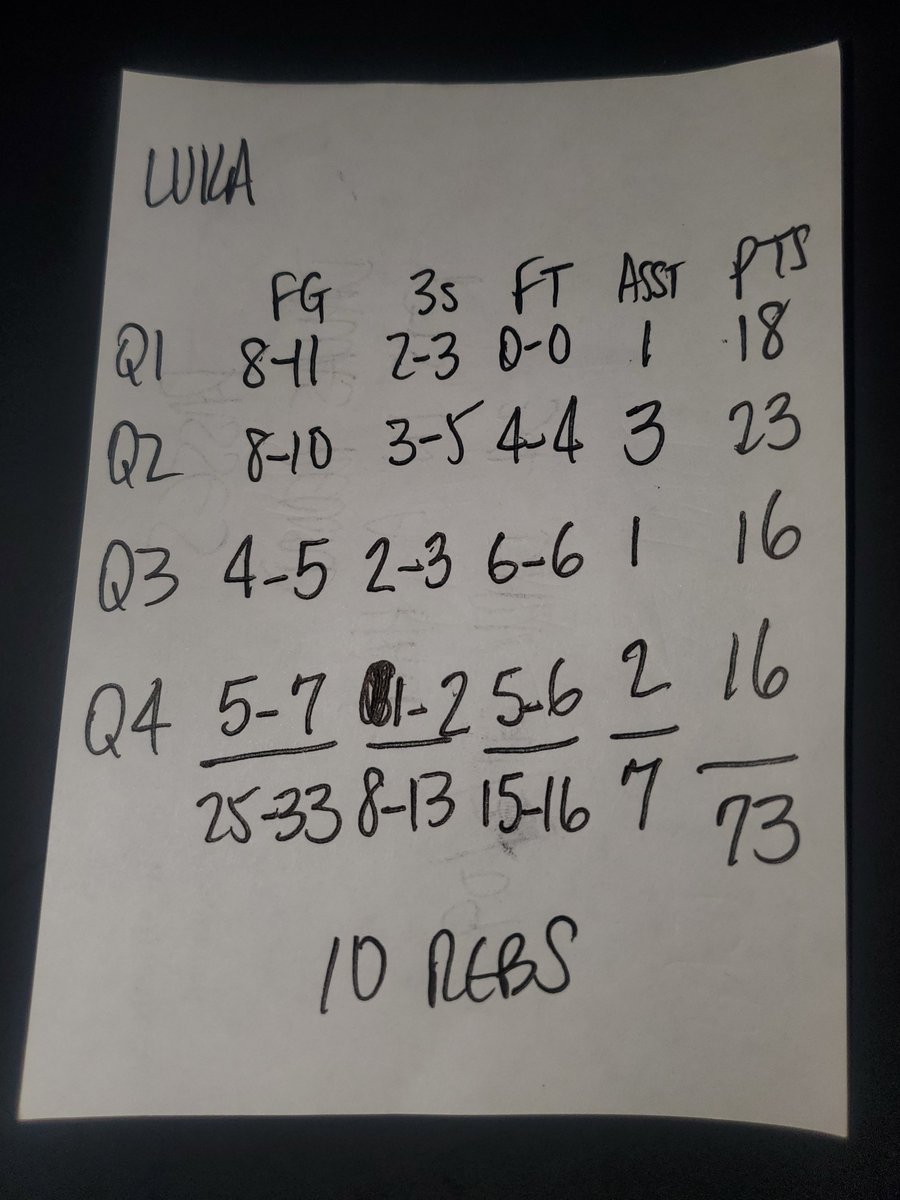 LUKA
FG 3s FT ASST PTS
Q1 8-11 2-3 0-0 1 18
Q2 8-10 3-5 4-4 3 23
Q3 4-5 2-3 6-6 1 16
Q4 5-7 1-2 5-6 2 16
25-33 8-13 15-16 7 73
10 REBS